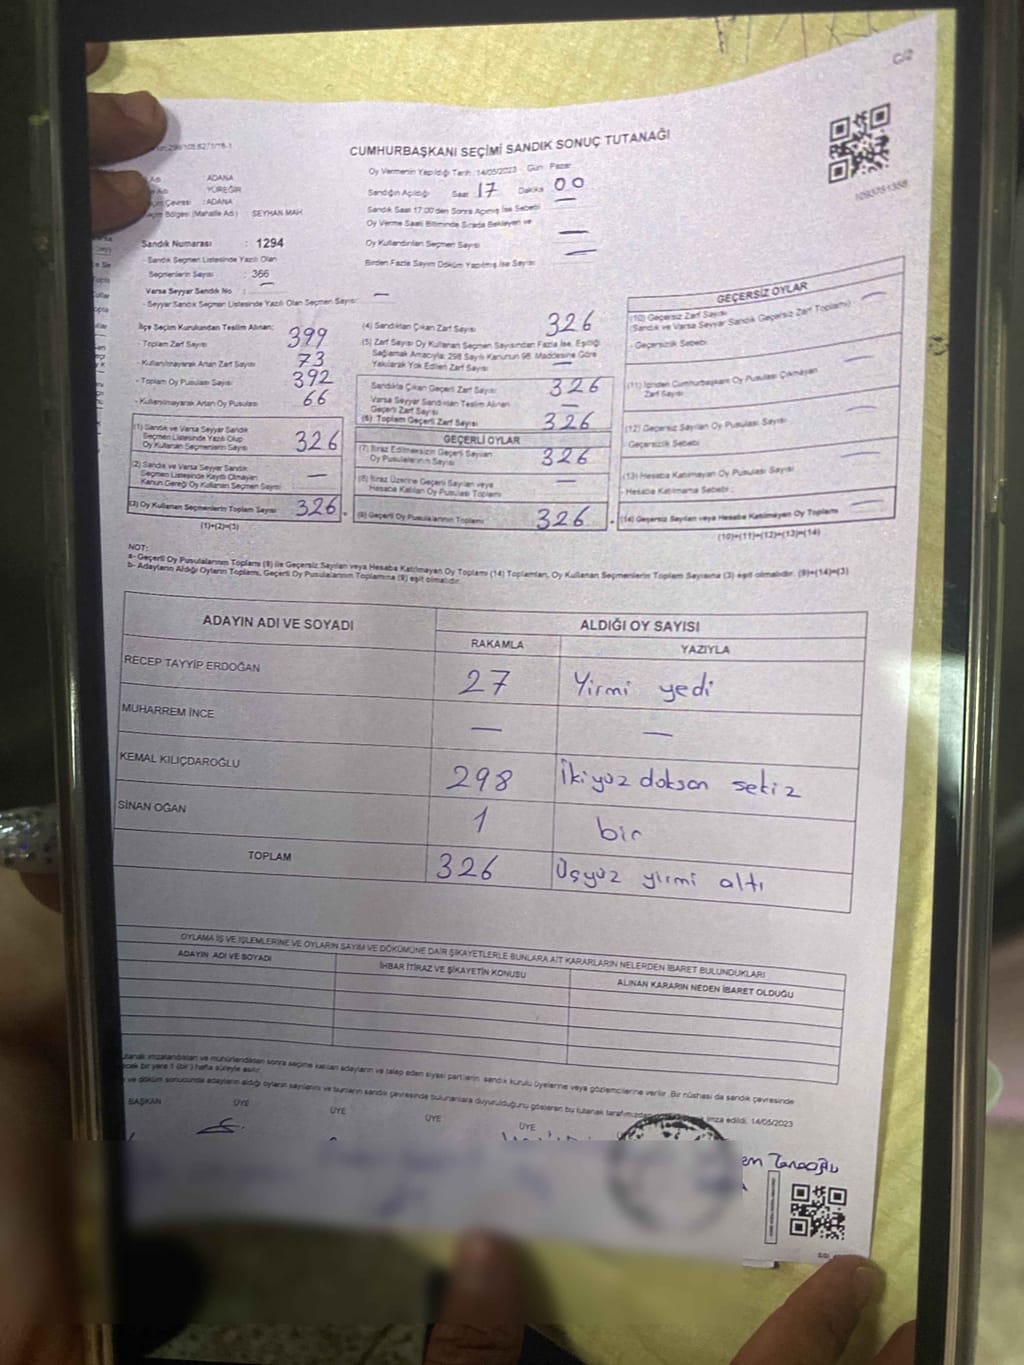 C/2
CUMHURBAŞKANI SEÇİMİ SANDIK SONUÇ TUTANAĞI
1093751358
ADANA
YÜREĞİR
: ADANA
Bölgesi (Mahalle Adı) SEYHAN MAH.
Sandık Numarası : 1294
- Sandık Seçmen Listesinde Yazılı Olan
Seçmenlerin Sayısı : 366
Varsa Seyyar Sandık No : —
- Seyyar Sandık Seçmen Listesinde Yazılı Olan Seçmen Sayısı: —
Oy Vermenin Yapıldığı Tarih :14/05/2023 Gün : Pazar
Sandığın Açıldığı Saat 17 Dakika 00
Sandık Saat 17:00'den Sonra Açılmış İse Sebebi —
Oy Verme Saati Bitiminde Sırada Bekleyen ve
Oy Kullandırılan Seçmen Sayısı —
Birden Fazla Sayım Döküm Yapılmış İse Sayısı —
İlçe Seçim Kurulundan Teslim Alınan:
Toplam Zarf Sayısı 399
- Kullanılmayarak Artan Zarf Sayısı 73
- Toplam Oy Pusulası Sayısı 392
- Kullanılmayarak Artan Oy Pusulası 66
(1) Sandık ve Varsa Seyyar Sandık
Seçmen Listesinde Yazılı Olup
Oy Kullanan Seçmenlerin Sayısı 326
(2) Sandık ve Varsa Seyyar Sandık
Seçmen Listesinde Kayıtlı Olmayan
Kanun Gereği Oy Kullanan Seçmen Sayısı —
(3) Oy Kullanan Seçmenlerin Toplam Sayısı 326 =
(1)+(2)=(3)
(4) Sandıktan Çıkan Zarf Sayısı 326
(5) Zarf Sayısı Oy Kullanan Seçmen Sayısından Fazla İse, Eşitliği
Sağlamak Amacıyla; 298 Sayılı Kanunun 98. Maddesine Göre
Yakılarak Yok Edilen Zarf Sayısı —
Sandıkta Çıkan Geçerli Zarf Sayısı 326
Varsa Seyyar Sandıktan Teslim Alınan
Geçerli Zarf Sayısı —
(6) Toplam Geçerli Zarf Sayısı 326
GEÇERLİ OYLAR
(7) İtiraz Edilmeksizin Geçerli Sayılan
Oy Pusulalarının Sayısı 326
(8) İtiraz Üzerine Geçerli Sayılan veya
Hesaba Katılan Oy Pusulası Toplamı —
(9) Geçerli Oy Pusulalarının Toplamı 326 +
GEÇERSİZ OYLAR
(10) Geçersiz Zarf Sayısı
(Sandık ve Varsa Seyyar Sandık Geçersiz Zarf Toplamı) —
- Geçersizlik Sebebi
(11) İçinden Cumhurbaşkanı Oy Pusulası Çıkmayan
Zarf Sayısı —
(12) Geçersiz Sayılan Oy Pusulası Sayısı —
- Geçersizlik Sebebi
(13) Hesaba Katılmayan Oy Pusulası Sayısı —
- Hesaba Katılmama Sebebi :
(14) Geçersiz Sayılan veya Hesaba Katılmayan Oy Toplamı —
(10)+(11)+(12)+(13)=(14)
NOT:
a- Geçerli Oy Pusulalarının Toplamı (9) ile Geçersiz Sayılan veya Hesaba Katılmayan Oy Toplamı (14) Toplamları, Oy Kullanan Seçmenlerin Toplam Sayısına (3) eşit olmalıdır. (9)+(14)=(3)
b- Adayların Aldığı Oyların Toplamı, Geçerli Oy Pusulalarının Toplamına (9) eşit olmalıdır.
ADAYIN ADI VE SOYADI ALDIĞI OY SAYISI
RAKAMLA YAZIYLA
RECEP TAYYİP ERDOĞAN 27 Yirmi yedi
MUHARREM İNCE — —
KEMAL KILIÇDAROĞLU 298 İkiyüz doksan sekiz
SİNAN OĞAN 1 bir
TOPLAM 326 Üşyüz yirmi altı
OYLAMA İŞ VE İŞLEMLERİNE VE OYLARIN SAYIM VE DÖKÜMÜNE DAİR ŞİKAYETLERLE BUNLARA AİT KARARLARIN NELERDEN İBARET BULUNDUKLARI
ADAYIN ADI VE SOYADI İHBAR İTİRAZ VE ŞİKAYETİN KONUSU ALINAN KARARIN NEDEN İBARET OLDUĞU
tutanak imzalandıktan ve mühürlendikten sonra seçime katılan adayların ve talep eden siyasi partilerin sandık kurulu üyelerine veya gözlemcilerine verilir. Bir nüshası da sandık çevresinde
bir yere 1 (bir) hafta süreyle asılır.
ve döküm sonucunda adayların aldığı oyların sayılarını ve bunların sandık çevresinde bulunanlara duyurulduğunu gösteren bu tutanak tarafımızdan imza edildi. 14/05/2023
BAŞKAN ÜYE ÜYE ÜYE ÜYE